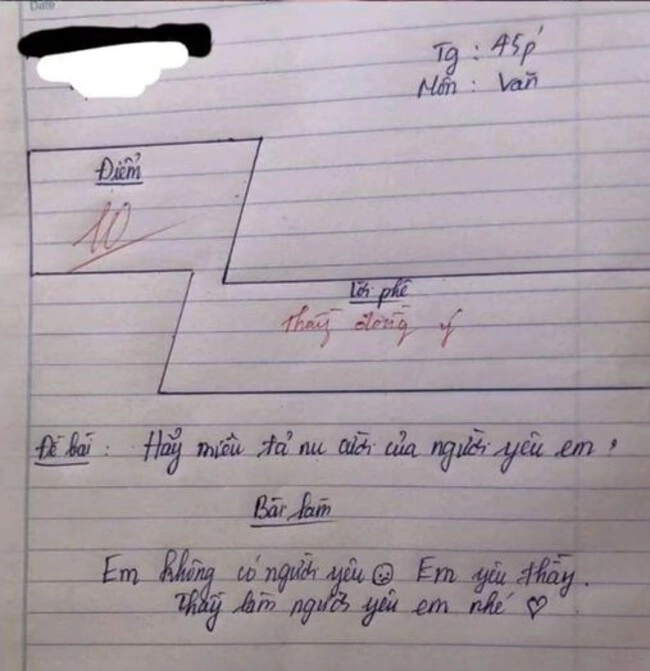 Date
Tg : 45p'
Môn : Văn
Điểm
10
Lời phê
thầy đồng ý
Đề bài : Hãy miêu tả nụ cười của người yêu em ?
Bài làm
Em không có người yêu ☹ Em yêu thầy.
Thầy làm người yêu em nhé ♡